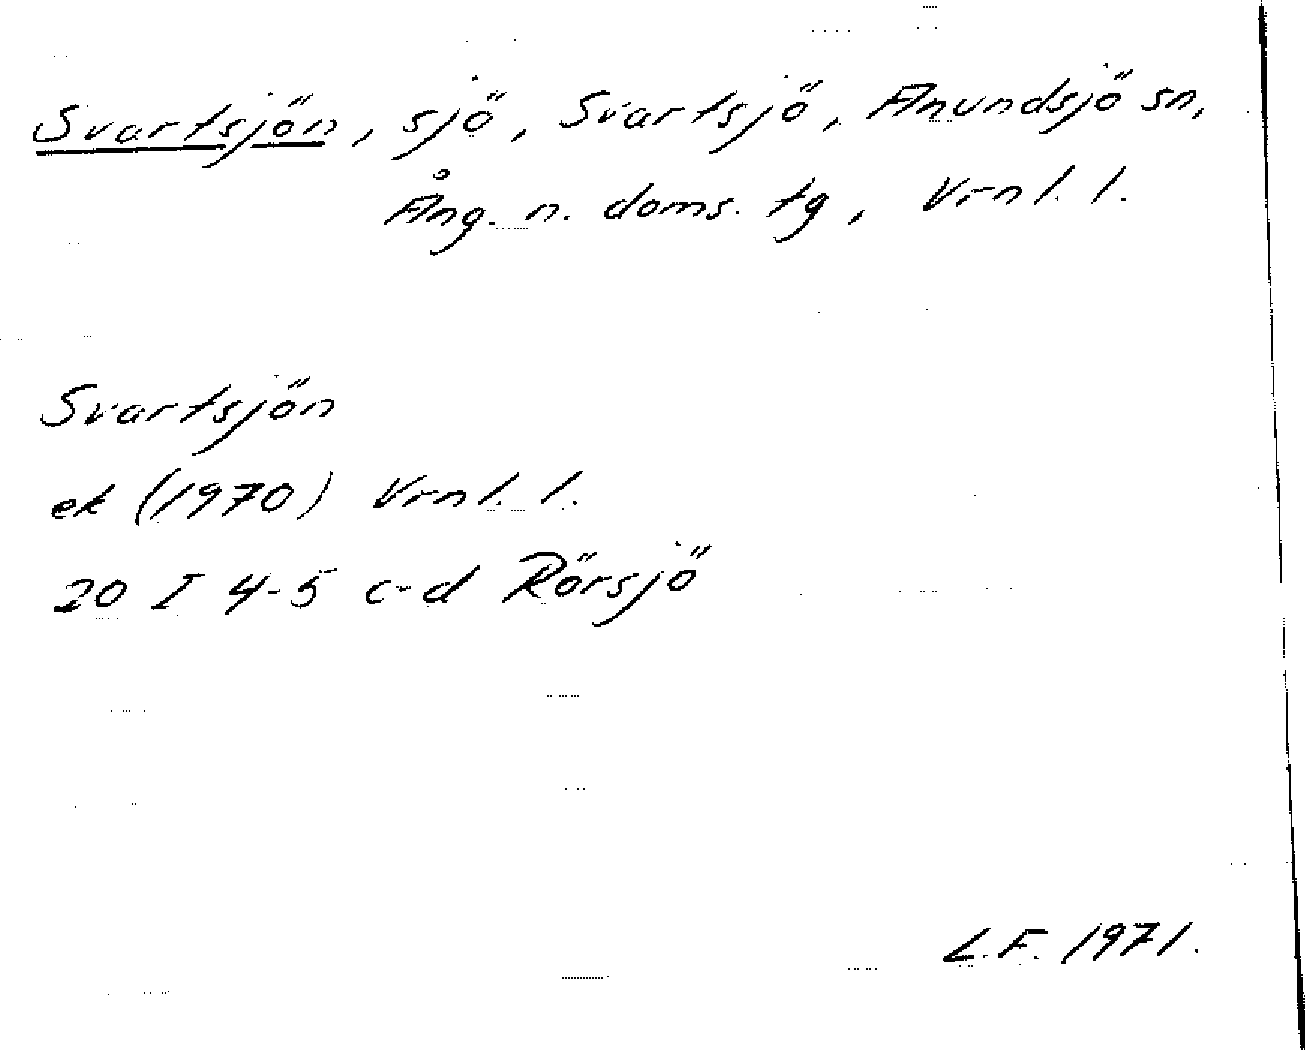 Svartsjön, sjö, Svartsjö, Anundsjö sn,
Ång. n. doms. tg, Vrnl. l.
Svartsjön
ek (1970) Vrnl. l.
20 I 4-5 c-d Rörsjö
L.F. 1971.